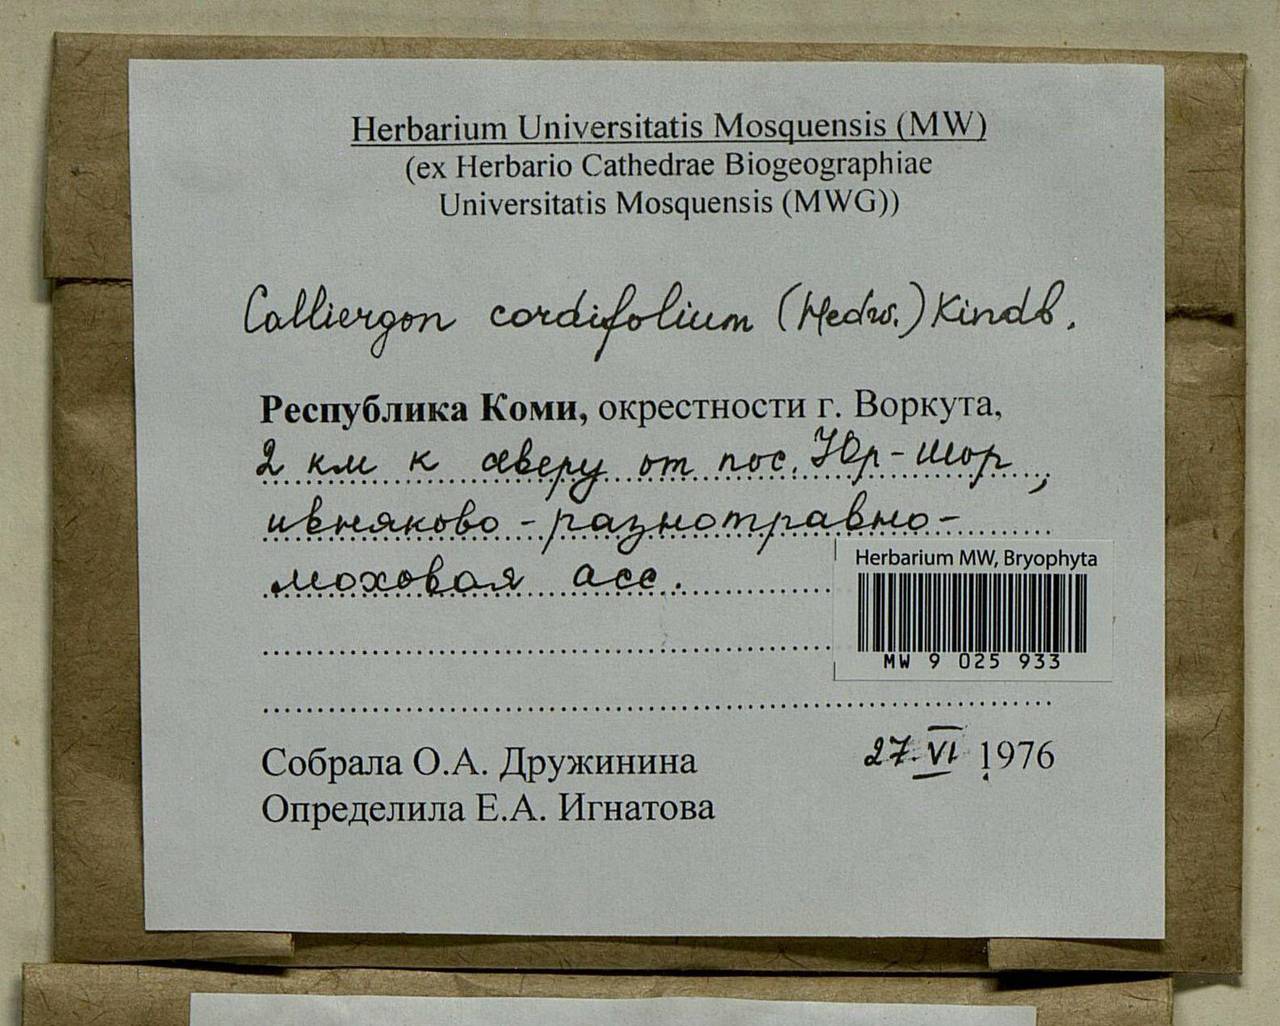 Herbarium Universitatis Mosquensis (MW)
(ex Herbario Cathedrae Biogeographiae
Universitatis Mosquensis (MWG))
Calliergon cordifolium (Hedw.) Kindb.
Республика Коми, окрестности г. Воркута,
2 км к северу от пос. Юр-Шор,
ивняково-разнотравно-
моховая асс.
Herbarium MW, Bryophyta
MW 9 025 933
27.VI 1976
Собрала О.А. Дружинина
Определила Е.А. Игнатова